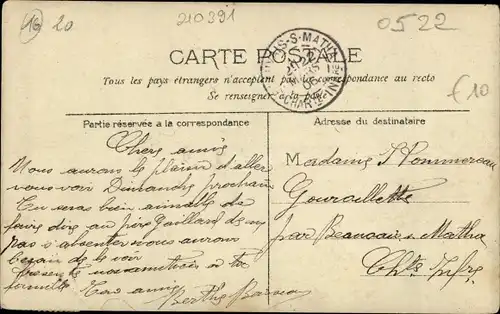 16 20
210391
0522
€10
CARTE POSTALE
Tous les pays étrangers n'acceptent pas la correspondance au recto
Se renseigner à la poste
Partie réservée a la correspondance
Adresse du destinataire
Chers amis
Nous aurons le plaisir d'aller
vous voir Dimanche prochain
Tu seras bien aimable de
faire dire au père Gaillard de ne
pas s'absenter nous aurons
besoin de le voir
Présente nos amitiés à ta
famille Ton ami
Berthe
Madame
Gourvillette
par Beauvais s. Matha
Chte Infre